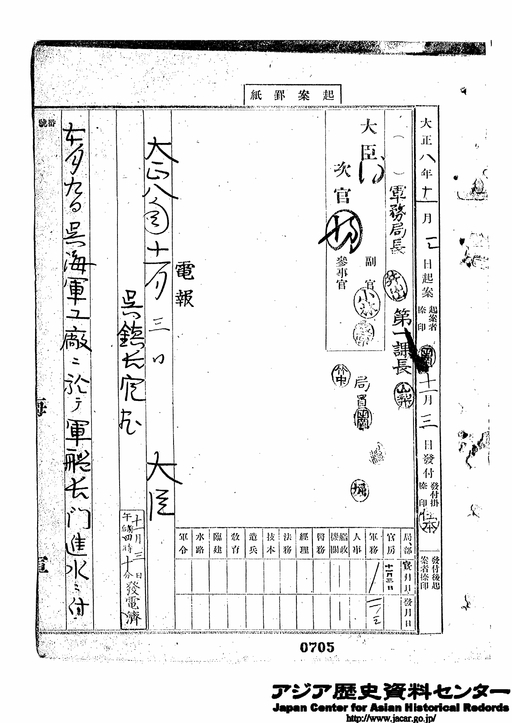 起案罫紙
大正八年十一月 日起案
起案者捺印
十一月三日発付
発付掛捺印
発付後起案者捺印
軍務局長
第一課長
局員
大臣
次官
副官
参事官
電報
大正八年十一月三日
大臣
呉鎮長官宛
十一月三日
午後四時十分発電済
本月九日呉海軍工廠ニ於テ軍艦長門進水ニ付
局部
官房
軍務
人事
艦政
機関
医務
経理
法務
技本
造兵
教育
臨建
水路
軍令
海
軍
0705
アジア歴史資料センター
Japan Center for Asian Historical Records
http://www.jacar.go.jp/